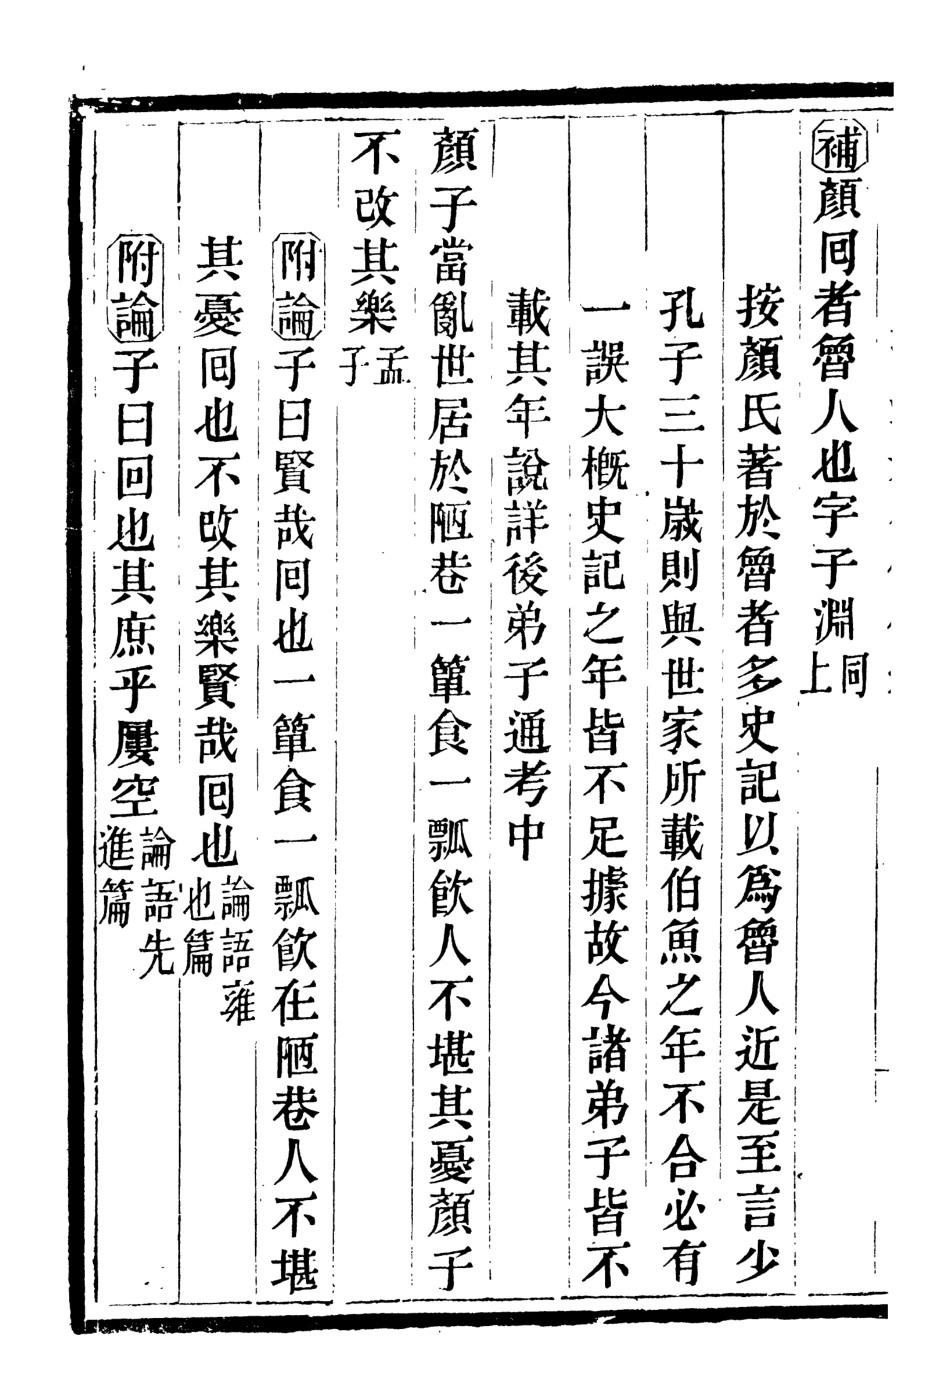 補顔囘者魯人也字子淵同上
按顔氏著於魯者多史記以爲魯人近是至言少
孔子三十歲則與世家所載伯魚之年不合必有
一誤大槪史記之年皆不足據故今諸弟子皆不
載其年說詳後弟子通考中
顔子當亂世居於陋巷一簞食一瓢飮人不堪其憂顔子
不改其樂孟子
附論子曰賢哉囘也一簞食一瓢飮在陋巷人不堪
其憂囘也不改其樂賢哉囘也論語雍也篇
附論子曰回也其庶乎屢空論語先進篇